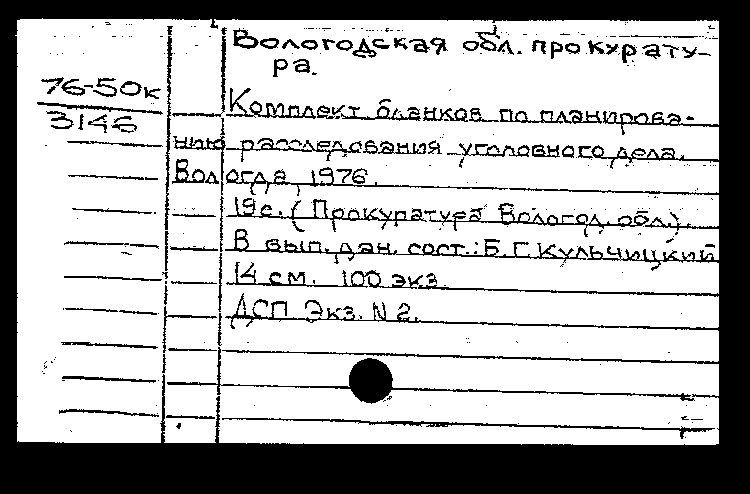 Вологодская обл. прокурату-
ра.
76-50к
3146
Комплект бланков по планирова-
нию расследования уголовного дела.
Вологда, 1976.
19с. (Прокуратура Вологод. обл.).
В вып. дан. сост.: Б.Г. Кульчицкий
14 см. 100 экз.
ДСП Экз. N 2.